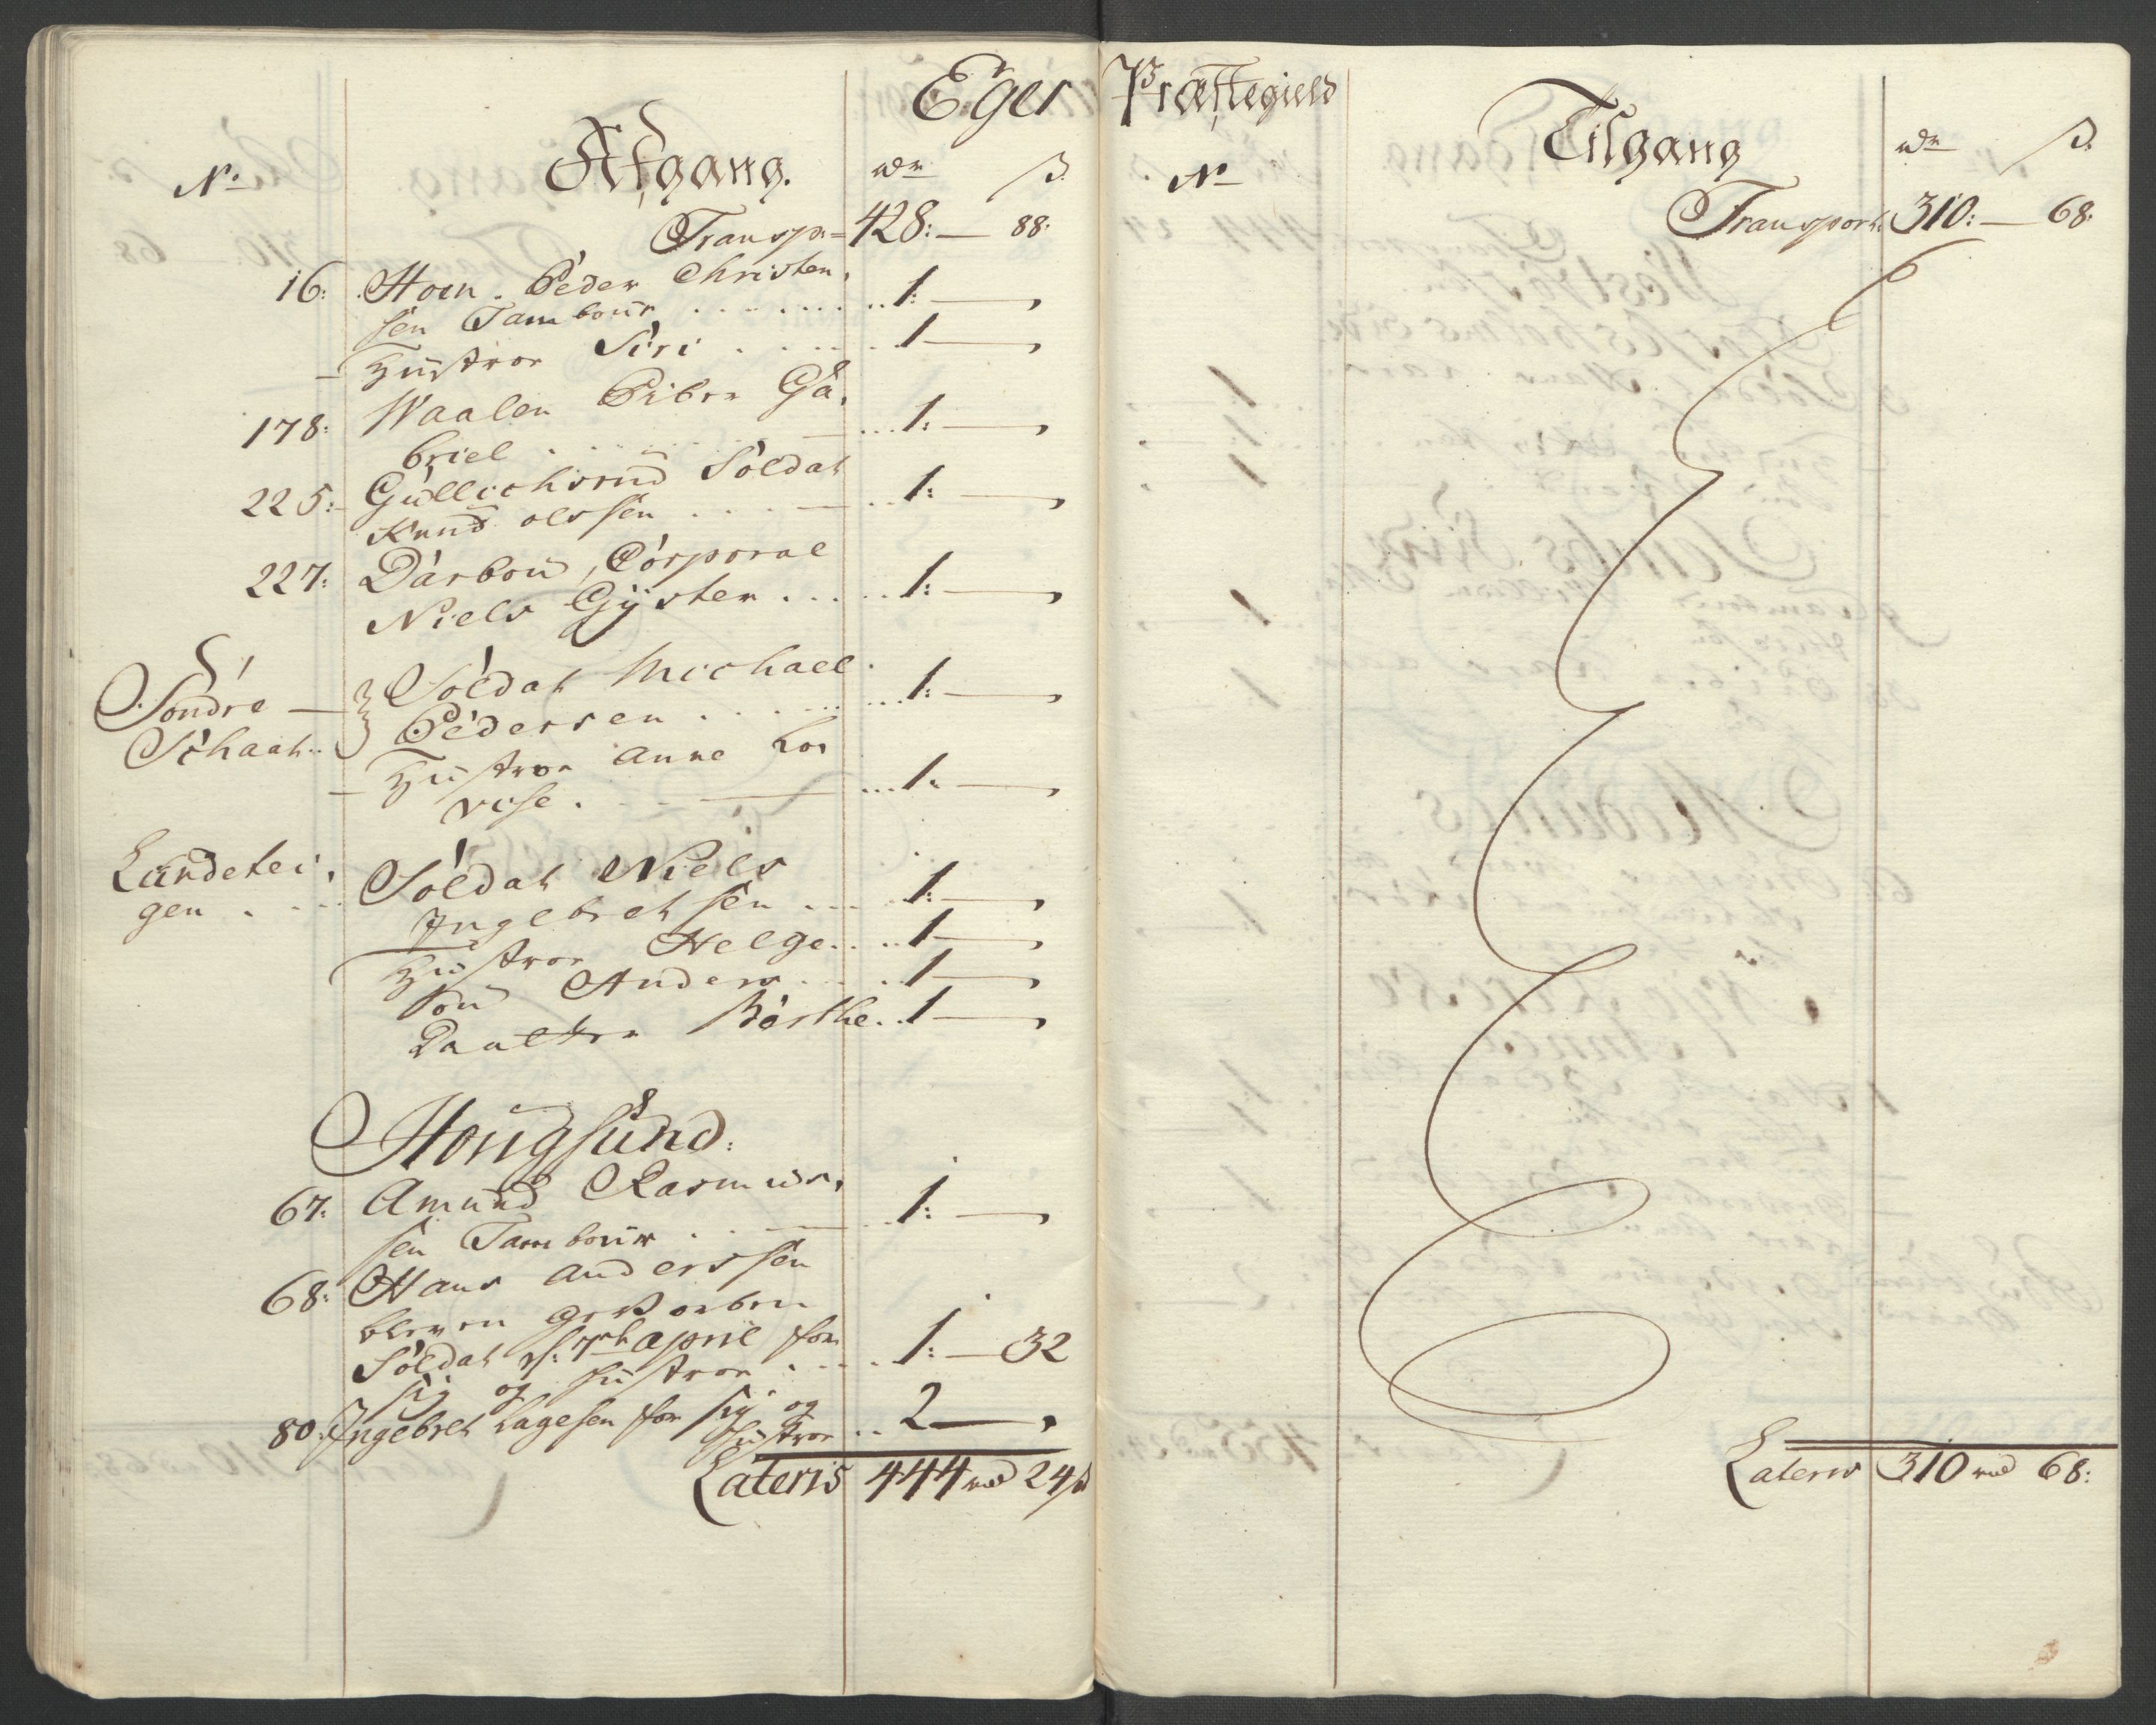 Eger Præstegield
No Afgang. rdr ß.
Transp: 428: — 88:
16: Hoen. Peder Christen,
sen Tambour . . . . . . . 1: — ,
— Hustroe Siri . . . . . 1 — ,
178: Waalen Piber Ga,
briel . . . . . . . 1: — ,
225: Gullichsrud Soldat
Knud olssen . . . . . 1: — ,
227: Darbou, Corporal
Niels Gyster . . . . . 1: — ,
Søndre — Soldat Michael
Schaat.. Pedersen . . . . . . . 1: — ,
— Hustroe Anne Lo,
vise . . . . 1. — ,
Landetei, Soldat Niels
gen . . . Ingebretsen . . . . . 1: — ,
Hustroe Helge . . . . 1 — ,
Søn Anders . . . . . 1 — ,
Daatter Børthe . . 1 — ,
Hougsund:
67: Amund Rasmus,
sen Tambour . . . 1: — ,
68: Hans Anderssen
bleven geworben
Soldat d: 7de April for
sig og Hustroe . . . . 1: — 32
80: Ingebret Lagesen for sig og
Hustroe . . 2 — ,
Lateris 444 rd 24 ß
No Tilgang rdr ß.
Transport: 310: — 68:
Lateris 310 rd 68: